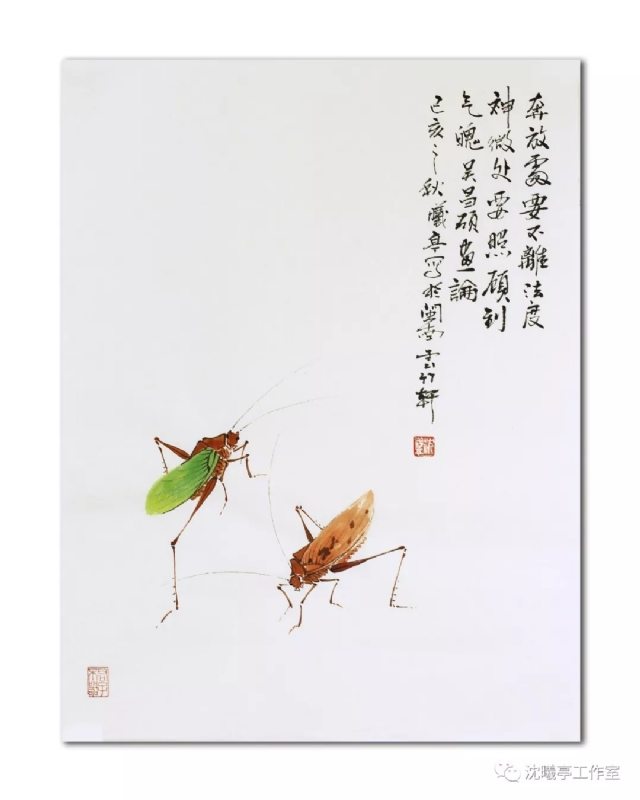 奔放處要不離法度
神微处要照顾到
气魄吴昌硕画論
己亥之秋曦亭写於闽南云行轩
沈曦亭工作室